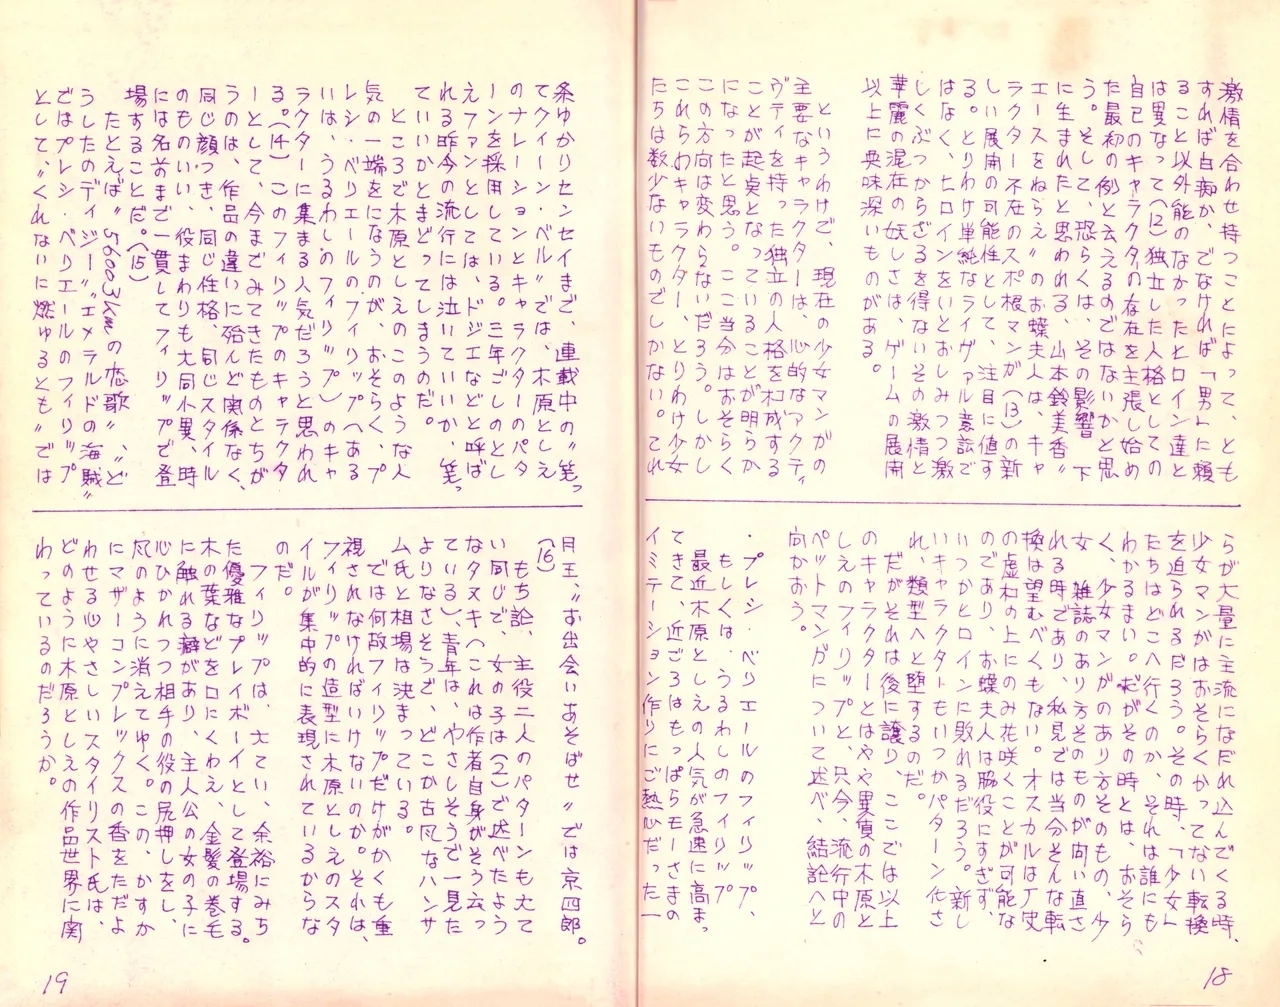 激情を合わせ持つことによって、とも
すれば白痴か、でなければ「男」に頼
ること以外能のなかったヒロイン達と
は異なって(12)独立した人格としての
自己のキャラクタの存在を主張し始め
た最初の例と云えるのではないかと思
う。そして、恐らくは、その影響下
に生まれたと思われる、山本鈴美香〝
エースをねらえ〟のお蝶夫人は、キャ
ラクター不在のスポ根マンガ(13)の新
しい展開の可能性として、注目に値す
る。とりわけ単純なライヴァル意識で
はなく、ヒロインをいとおしみつつ激
しくぶつからざるを得ないその激情と
華麗の混在の妖しさは、ゲームの展開
以上に興味深いものがある。
というわけで、現在の少女マンガの
主要なキャラクターは、心的なアクティ
ヴティを持った独立の人格を構成する
ことが起点となっていることが明らか
になったと思う。ここ当分はおそらく
この方向は変わらないだろう。しかし
これらのキャラクター、とりわけ少女
たちは数少ないものでしかない。てれ
らが大量に主流になだれ込んでくる時、
少女マンガはおそらくかってない転換
を迫られるだろう。その時、「少女」
たちはどこへ行くのか、それは誰にも
わかるまい。だがその時とは、おそら
く、少女マンガのあり方そのもの、少
女雑誌のあり方そのものが向い直さ
れる時であり、私見では当分そんな転
換は望むべくもない。オスカルは「史
の虚構の上にのみ花咲くことが可能な
のであり、お蝶夫人は脇役にすぎず、
いつかヒロインに敗れるだろう。新し
いキャラクターもいつかパターン化さ
れ、類型へと堕するのだ。
だがそれは後に譲り、ここでは以上
のキャラクターとはやや異質の木原と
しえのフィリップと、只今、流行中の
ペットマンガについて述べ、結論へと
向かおう。
・プレシ・ベリエールのフィリップ、
もしくは、うるわしのフィリップ
最近木原としえの人気が急速に高まっ
てきて、近ごろはもっぱらモーさまの
イミテーション作りにご熱心だった一
条ゆかりセンセイまで、連載中の〝笑っ
てクイーン・ベル〟では、木原としえ
のナレーションとキャラクターのパタ
ーンを採用している。三年ごしのとし
えファンとしては、ドジエなどと呼ば
れる昨今の流行には泣いていいか、笑っ
ていいかとまどってしまうのだ。
ところで木原としえのこのような人
気の一端をになうのが、おそらく、プ
レシ・ベリエールのフィリップ(ある
いは、うるわしのフィリップ)のキャ
ラクターに集まる人気だろうと思われ
る。(14)このフィリップのキャラクタ
ーとして、今までみてきたものとちが
うのは、作品の違いに殆んど関係なく、
同じ顔つき、同じ性格、同じスタイル
のものいい、役まわりも大同小異、時
には名前まで一貫してフィリップで登
場することだ。(15)
たとえば〝56003kmの恋歌〟、〝ど
うしたのデイジー〟〝エメラルドの海賊〟
ではプレシ・ベリエールのフィリップ
として、〝くれないに燃ゆるとも〟では
月王、〝お出会いあそばせ〟では京四郎。
(16)
もち論、主役二人のパターンも大て
い同じで、女の子は(2)で述べたよう
なタヌキ(これは作者自身がそう云っ
ている)、青年は、やさしそうで一見た
よりなさそうで、どこか古風なハンサ
ム氏と相場は決まっている。
では何故フィリップだけがかくも重
視されなければいけないのか。それは、
フィリップの造型に木原としえのスタ
イルが集中的に表現されているからな
のだ。
フィリップは、大てい、余裕にみち
た優雅なプレイボーイとして登場する。
木の葉などを口にくわえ、金髪の巻毛
に触れる癖があり、主人公の女の子に
心ひかれつつ相手の役の尻押しをし、
風のように消えてゆく。この、かすか
にマザーコンプレックスの香をただよ
わせる心やさしいスタイリスト氏は、
どのように木原としえの作品世界に関
わっているのだろうか。
18
19